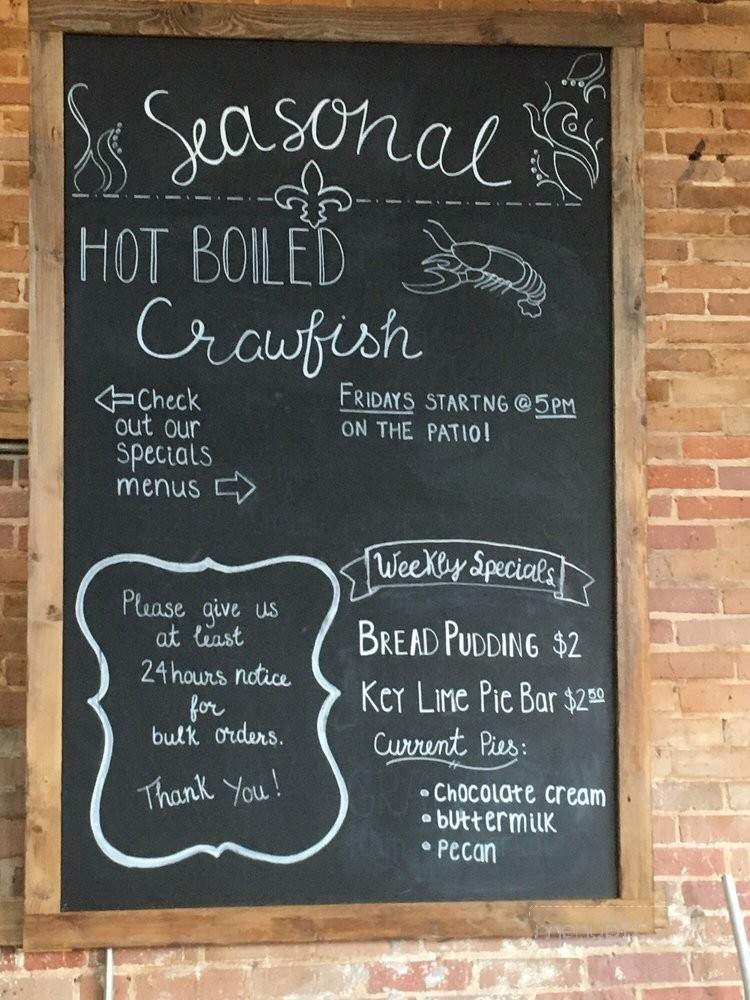 Seasonal
HOT BOILED
Crawfish
Check
out our
specials
menus
FRIDAYS STARTNG @ 5PM
ON THE PATIO!
Please give us
at least
24 hours notice
for
bulk orders.
Thank You!
Weekly Specials
BREAD PUDDING $2
KEY LIME PIE BAR $2 50
Current Pies:
• Chocolate cream
• buttermilk
• Pecan